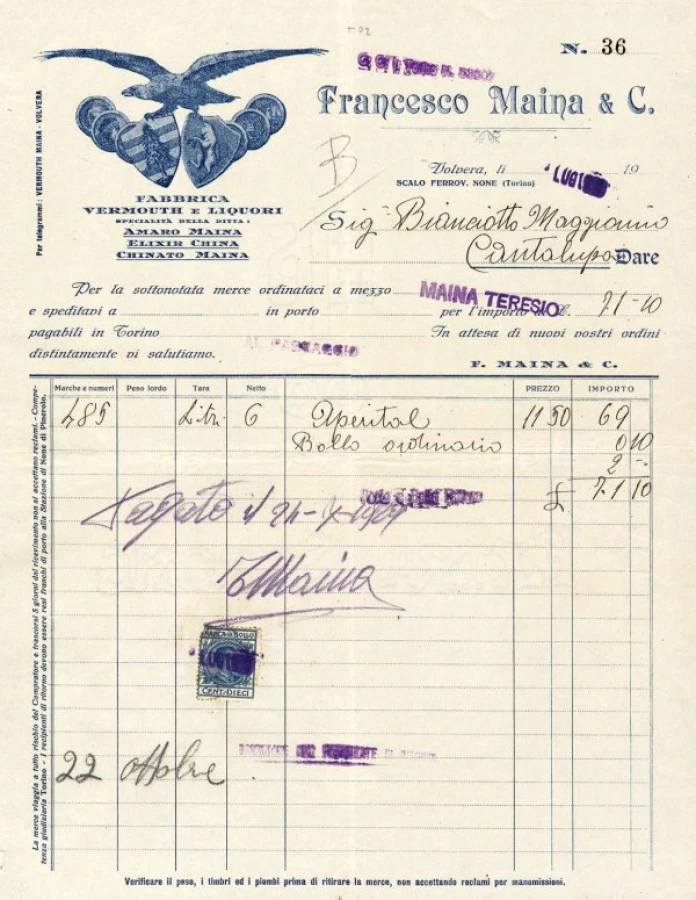 N. 36
Francesco Maina & C.
Per telegrammi: VERMOUTH MAINA - VOLVERA
Volvera, li LUGL 19
SCALO FERROV. NONE (Torino)
B
FABBRICA
VERMOUTH E LIQUORI
SPECIALITÀ DELLA DITTA:
AMARO MAINA
ELIXIR CHINA
CHINATO MAINA
Sig. Bianciotto Maggiorino
Cantalupo Dare
Per la sottonotata merce ordinataci a mezzo MAINA TERESIO
e speditavi a in porto per l'importo di L. 71-10
pagabili in Torino In attesa di nuovi vostri ordini
AL PASSAGGIO
distintamente vi salutiamo.
F. MAINA & C.
Marche e numeri Peso lordo Tara Netto PREZZO IMPORTO
485 Litri 6 Aperital 11 50 69
Bollo ordinario 0 10
2 -
£ 71 10
Pagato il 24-X-1927
Maina
MARCA DA BOLLO
LUGL
CENT. DIECI
22 ottobre
La merce viaggia a tutto rischio del Compratore e trascorsi 5 giorni dal ricevimento non si accettano reclami. - Compe-
tenza giudiziaria Torino - I recipienti di ritorno devono essere resi franchi di porto alla Stazione di None di Pinerolo.
Verificare il peso, i timbri ed i piombi prima di ritirare la merce, non accettando reclami per manomissioni.